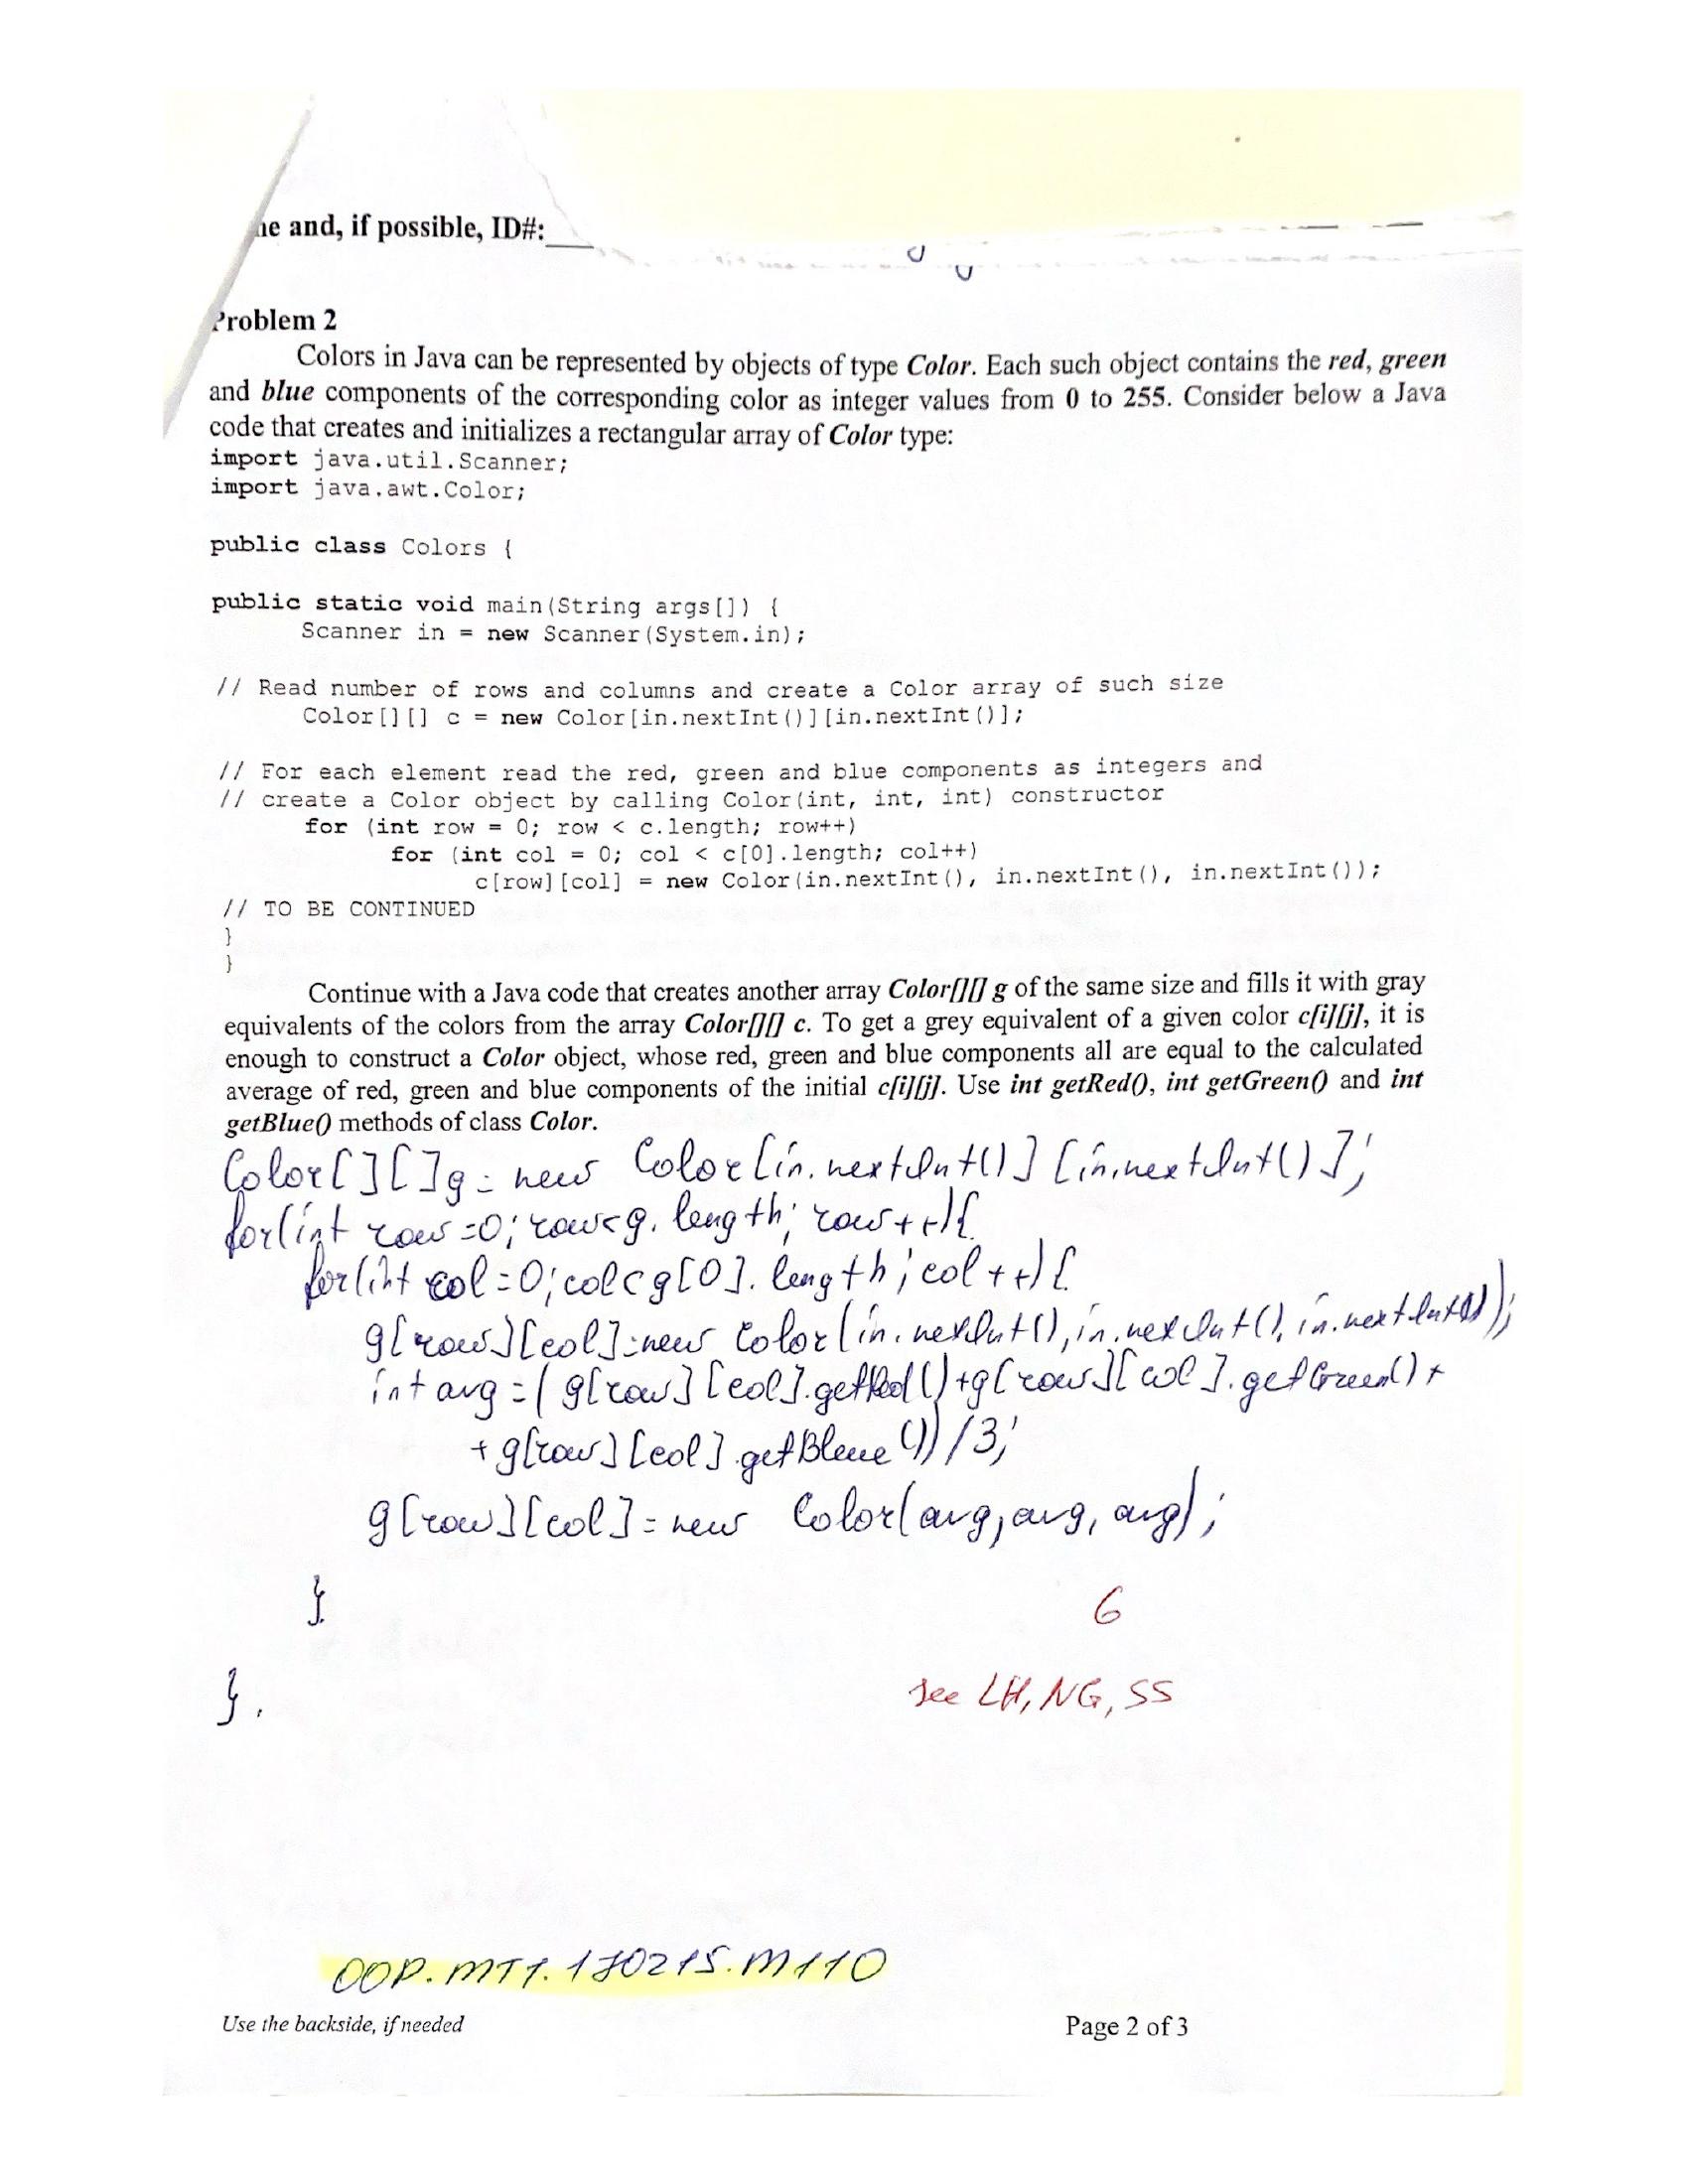 ne and, if possible, ID#:
Problem 2
Colors in Java can be represented by objects of type Color. Each such object contains the red, green
and blue components of the corresponding color as integer values from 0 to 255. Consider below a Java
code that creates and initializes a rectangular array of Color type:
import java.util.Scanner;
import java.awt.Color;
public class Colors {
public static void main(String args[]) {
Scanner in = new Scanner(System.in);
// Read number of rows and columns and create a Color array of such size
Color[][] c = new Color[in.nextInt()][in.nextInt()];
// For each element read the red, green and blue components as integers and
// create a Color object by calling Color(int, int, int) constructor
for (int row = 0; row < c.length; row++)
for (int col = 0; col < c[0].length; col++)
c[row][col] = new Color(in.nextInt(), in.nextInt(), in.nextInt());
// TO BE CONTINUED
}
}
Continue with a Java code that creates another array Color[][] g of the same size and fills it with gray
equivalents of the colors from the array Color[][] c. To get a grey equivalent of a given color c[i][j], it is
enough to construct a Color object, whose red, green and blue components all are equal to the calculated
average of red, green and blue components of the initial c[i][j]. Use int getRed(), int getGreen() and int
getBlue() methods of class Color.
Color[][]g = new Color[in.nextInt()][in.nextInt()];
for(int row=0; row<g.length; row++){
for(int col=0; col<g[0].length; col++){
g[row][col]=new Color(in.nextInt(), in.nextInt(), in.nextInt());
int avg = (g[row][col].getRed()+g[row][col].getGreen()+
+g[row][col].getBleue())/3;
g[row][col]=new Color(avg, avg, avg);
}
6
}.
see LH, NG, SS
OOP.MT1.170215.M110
Use the backside, if needed
Page 2 of 3